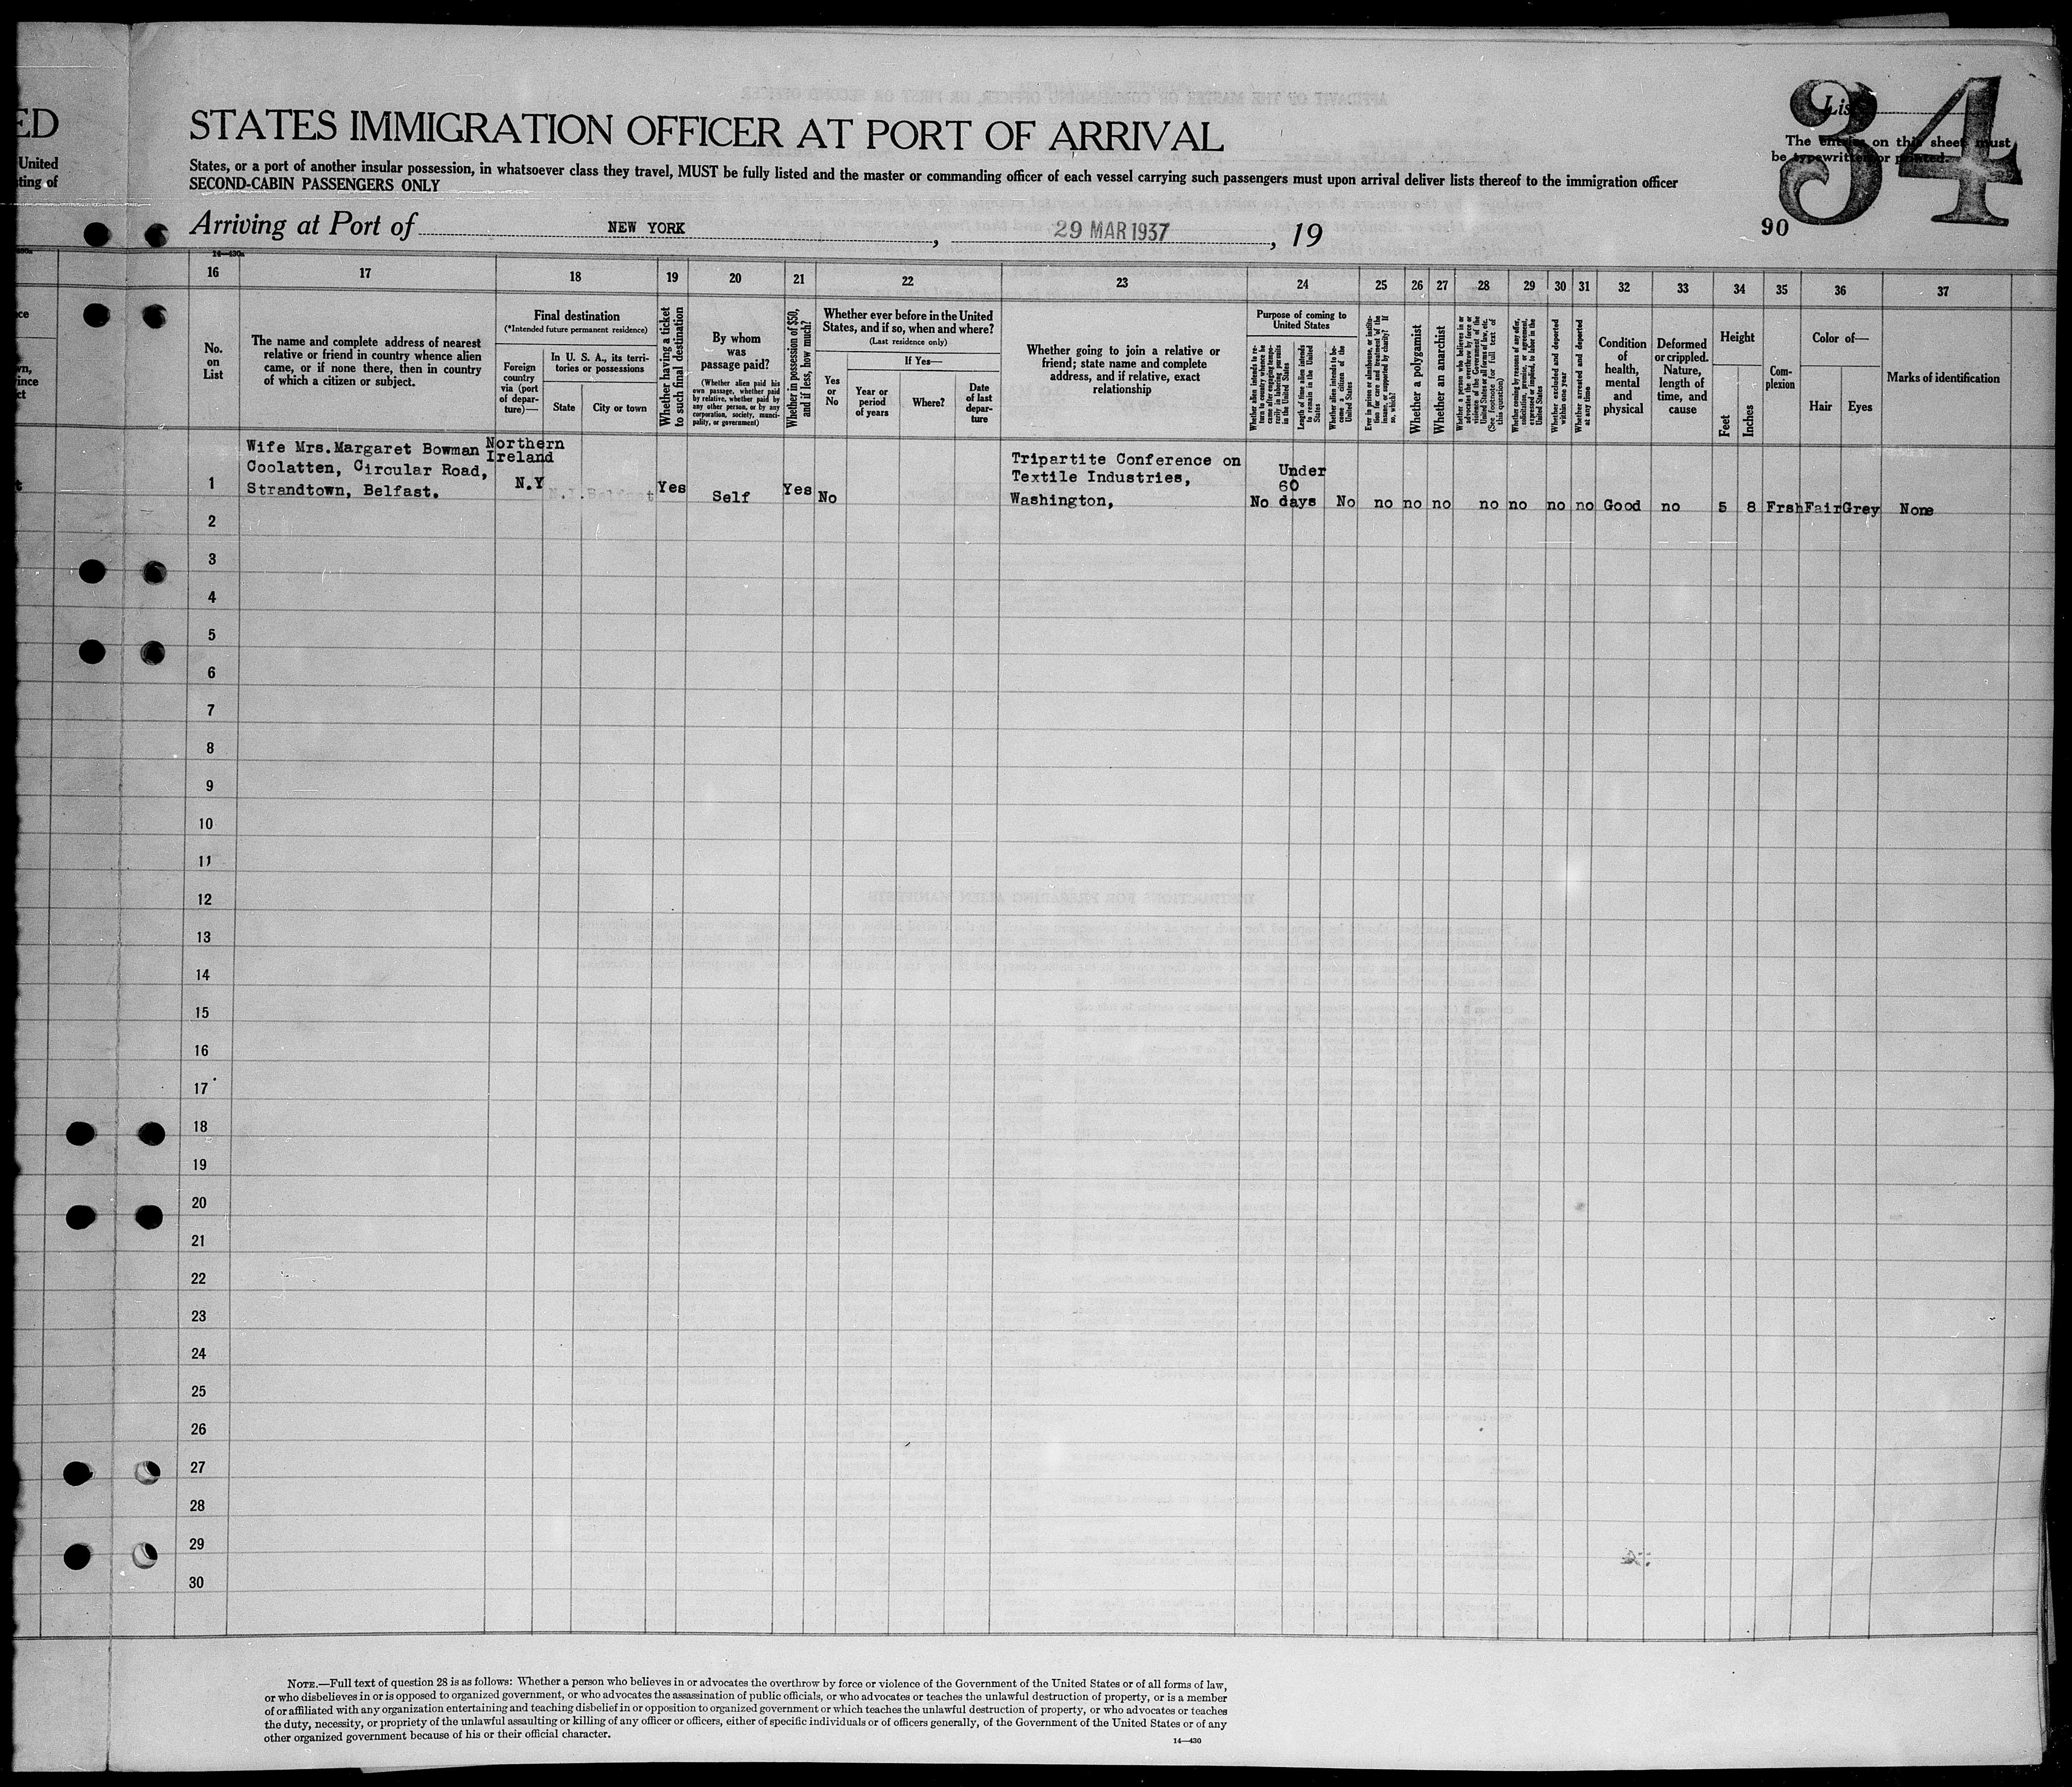 ED
STATES IMMIGRATION OFFICER AT PORT OF ARRIVAL
United
ting of
States, or a port of another insular possession, in whatsoever class they travel, MUST be fully listed and the master or commanding officer of each vessel carrying such passengers must upon arrival deliver lists thereof to the immigration officer
SECOND-CABIN PASSENGERS ONLY
34
List
The entries on this sheet must
be typewritten or printed.
90
Arriving at Port of NEW YORK, 29 MAR 1937, 19
14—430a
16 17 18 19 20 21 22 23 24 25 26 27 28 29 30 31 32 33 34 35 36 37
No.
on
List
The name and complete address of nearest
relative or friend in country whence alien
came, or if none there, then in country
of which a citizen or subject.
Final destination
(*Intended future permanent residence)
Foreign
country
via (port
of depar-
ture)—
In U. S. A., its terri-
tories or possessions
State
City or town
Whether having a ticket
to such final destination
By whom
was
passage paid?
(Whether alien paid his
own passage, whether paid
by relative, whether paid by
any other person, or by any
corporation, society, munici-
pality, or government)
Whether in possession of $50,
and if less, how much?
Whether ever before in the United
States, and if so, when and where?
(Last residence only)
Yes
or
No
If Yes—
Year or
period
of years
Where?
Date
of last
depar-
ture
Whether going to join a relative or
friend; state name and complete
address, and if relative, exact
relationship
Purpose of coming to
United States
Whether alien intends to re-
turn to country whence he
came after engaging tempo-
rarily in laboring pursuits
in the United States
Length of time alien intends
to remain in the United
States
Whether alien intends to be-
come a citizen of the
United States
Ever in prison or almshouse, or institu-
tion for care and treatment of the
insane, or supported by charity? If
so, which?
Whether a polygamist
Whether an anarchist
Whether a person who believes in or
advocates the overthrow by force or
violence of the Government of the
United States or all forms of law, etc.
(See footnote for full text of
this question)
Whether coming by reason of any offer,
solicitation, promise, or agreement,
expressed or implied, to labor in the
United States
Whether excluded and deported
within one year
Whether arrested and deported
at any time
Condition
of
health,
mental
and
physical
Deformed
or crippled.
Nature,
length of
time, and
cause
Height
Feet
Inches
Com-
plexion
Color of—
Hair
Eyes
Marks of identification
1
Wife Mrs.Margaret Bowman
Coolatten, Circular Road,
Strandtown, Belfast.
Northern
Ireland
N.Y
N.I.Belfast
Yes
Self
Yes
No
Tripartite Conference on
Textile Industries,
Washington,
Under
60
No days No no no no no no no no Good no 5 8 Frsh Fair Grey None
2
3
4
5
6
7
8
9
10
11
12
13
14
15
16
17
18
19
20
21
22
23
24
25
26
27
28
29
30
NOTE.—Full text of question 28 is as follows: Whether a person who believes in or advocates the overthrow by force or violence of the Government of the United States or of all forms of law,
or who disbelieves in or is opposed to organized government, or who advocates the assassination of public officials, or who advocates or teaches the unlawful destruction of property, or is a member
of or affiliated with any organization entertaining and teaching disbelief in or opposition to organized government or which teaches the unlawful destruction of property, or who advocates or teaches
the duty, necessity, or propriety of the unlawful assaulting or killing of any officer or officers, either of specific individuals or of officers generally, of the Government of the United States or of any
other organized government because of his or their official character.
14—430